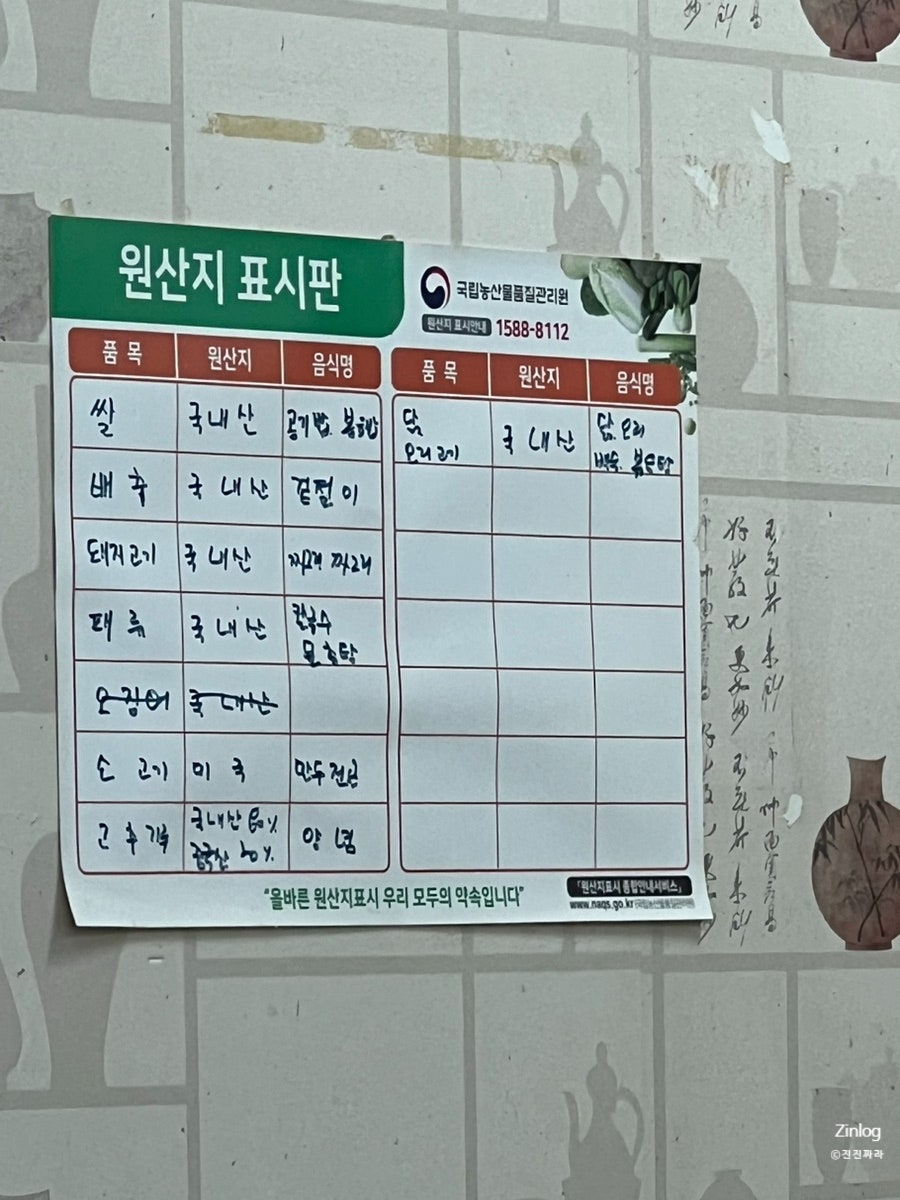 원산지 표시판
국립농산물품질관리원
원산지 표시안내 1588-8112
품 목 원산지 음식명
쌀 국내산 공기밥. 볶음밥
배 추 국 내 산 겉절이
돼지고기 국 내산 찌개
패 류 국 내 산 칼국수
오징어 국 내산
소 고기 미 국 만두전골
고 추 가루 국내산
중국산 양 념
품 목 원산지 음식명
닭 국 내 산 닭. 오리
오리고기 백숙. 볶음탕
"올바른 원산지표시 우리 모두의 약속입니다"
「원산지표시 종합안내서비스」
www.naqs.go.kr
Zinlog
©진진짜라